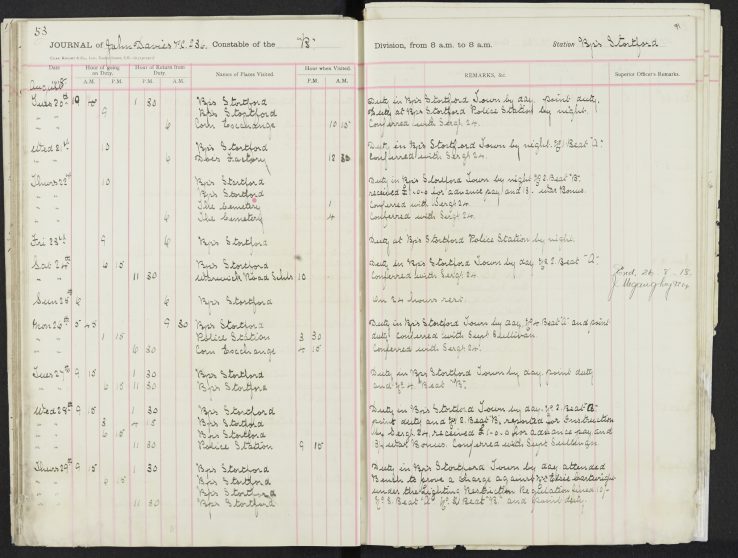 53
JOURNAL of John Davies P.C. 236. Constable of the "B" Division, from 8 a.m. to 8 a.m. Station Bp's Stortford
Date Hour of going on Duty. Hour of Return from Duty. Names of Places Visited. Hour when Visited. REMARKS, &c. Superior Officer's Remarks.
1918 A.M. P.M. P.M. A.M. P.M. A.M.
August
Tues 20th 9 1 30 Bp's Stortford Duty in Bp's Stortford Town by day, point duty,
" " 9 Bp's Stortford Duty at Bp's Stortford Police Station by night.
" " 6 Corn Exchange 10 15 Conferred with Sergt 24.
Wed 21st 10 Bp's Stortford Duty in Bp's Stortford Town by night. No 1 Beat "A"
" " 6 Factory 12 30 Conferred with Sergt 24.
Thurs 22nd 10 Bp's Stortford Duty in Bp's Stortford Town by night No 2. Beat "B".
" " Bp's Stortford received £1-0-0 for advance pay and War Bonus.
" " The Cemetery 1 Conferred with Sergt 24
" " 6 The Cemetery 4 Conferred with Sergt 24.
Fri 23rd 9 6 Bp's Stortford Duty at Bp's Stortford Police Station by night.
Sat 24th 6 15 Bp's Stortford Duty in Bp's Stortford Town by day No 2. Beat "A".
" " 11 30 Warwick Road Schls 10 Conferred with Sergt 24.
26. 8. 18.
Sun 25th 6 6 Bp's Stortford On 24 hours rest.
Mon 26th 5 45 9 30 Bp's Stortford Duty in Bp's Stortford Town by day No 4 Beat "A" and point
" " 1 15 Police Station 3 30 duty Conferred with Supt Sullivan.
" " 6 30 Corn Exchange 4 15 Conferred with Sergt 24.
Tues 27th 9 15 1 30 Bp's Stortford Duty in Bp's Stortford Town by day, point duty
" " 6 15 11 30 Bp's Stortford and No 4 Beat "B".
Wed 28th 9 15 1 30 Bp's Stortford Duty in Bp's Stortford Town by day. No 2. Beat "A"
" " 3 4 15 Bp's Stortford point duty and No 2. Beat B, reported for Instruction
" " 6 15 Bp's Stortford by Sergt 24, received £1-0-0 for advance pay and
" " 11 30 Police Station 9 15 War Bonus. Conferred with Supt Sullivan.
Thurs 29th 9 15 1 30 Bp's Stortford Duty in Bp's Stortford Town by day attended
" " 6 15 Bp's Stortford Bench to prove a charge against Cartwright
" " Bp's Stortford under the Lighting Restriction Regulation fined
" " 11 30 Bp's Stortford Beat "A" Beat "B" and point duty.